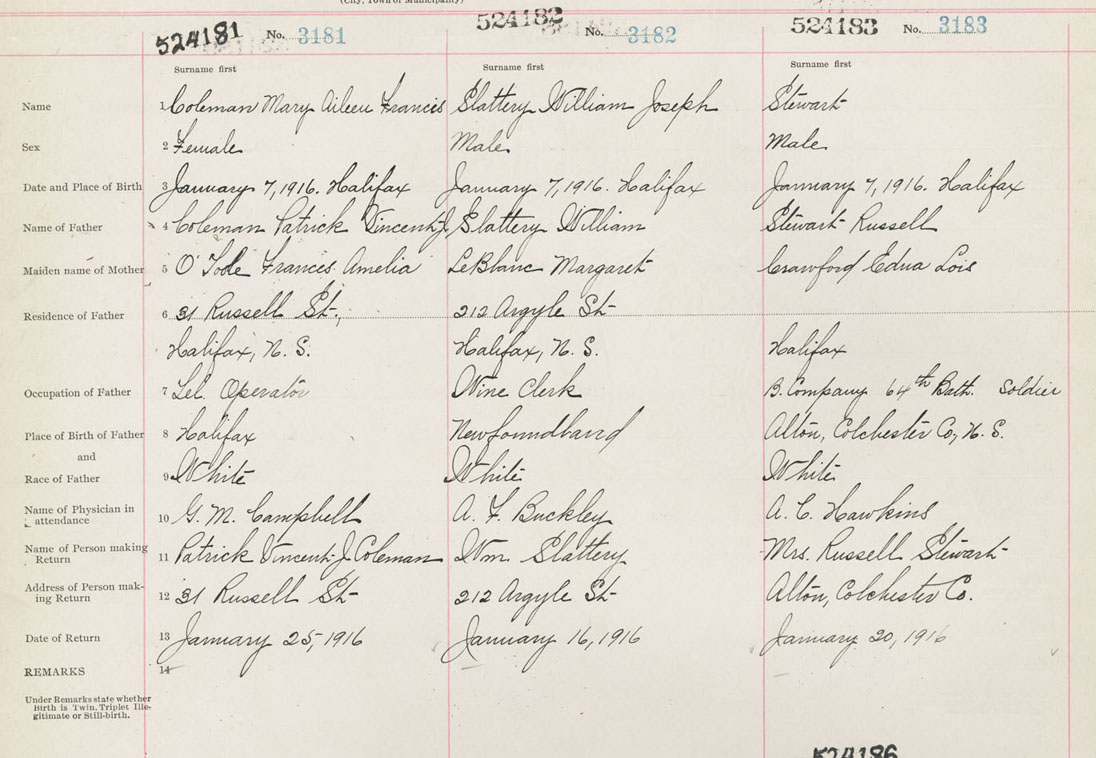 (City, Town or Municipality)
524181 No. 3181 524182 No. 3182 524183 No. 3183
Surname first Surname first Surname first
Name 1 Coleman Mary Aileen Francis Slattery William Joseph Stewart
Sex 2 Female Male Male
Date and Place of Birth 3 January 7, 1916. Halifax January 7, 1916. Halifax January 7, 1916. Halifax
Name of Father 4 Coleman Patrick Vincent J. Slattery William Stewart Russell
Maiden name of Mother 5 O'Toole Francis Amelia LeBlanc Margaret Crawford Edna Lois
Residence of Father 6 31 Russell St., 212 Argyle St
Halifax, N. S. Halifax, N. S. Halifax
Occupation of Father 7 Tel. Operator Wine Clerk B. Company 64th Batt. Soldier
Place of Birth of Father 8 Halifax Newfoundland Alton, Colchester Co, N. S.
and
Race of Father 9 White White White
Name of Physician in
attendance 10 G. M. Campbell A. F. Buckley A. C. Hawkins
Name of Person making
Return 11 Patrick Vincent J. Coleman Wm. Slattery Mrs. Russell Stewart
Address of Person mak-
ing Return 12 31 Russell St 212 Argyle St Alton, Colchester Co.
Date of Return 13 January 25, 1916 January 16, 1916 January 20, 1916
REMARKS 14
Under Remarks state whether
Birth is Twin, Triplet Ille-
gitimate or Still-birth.
524186